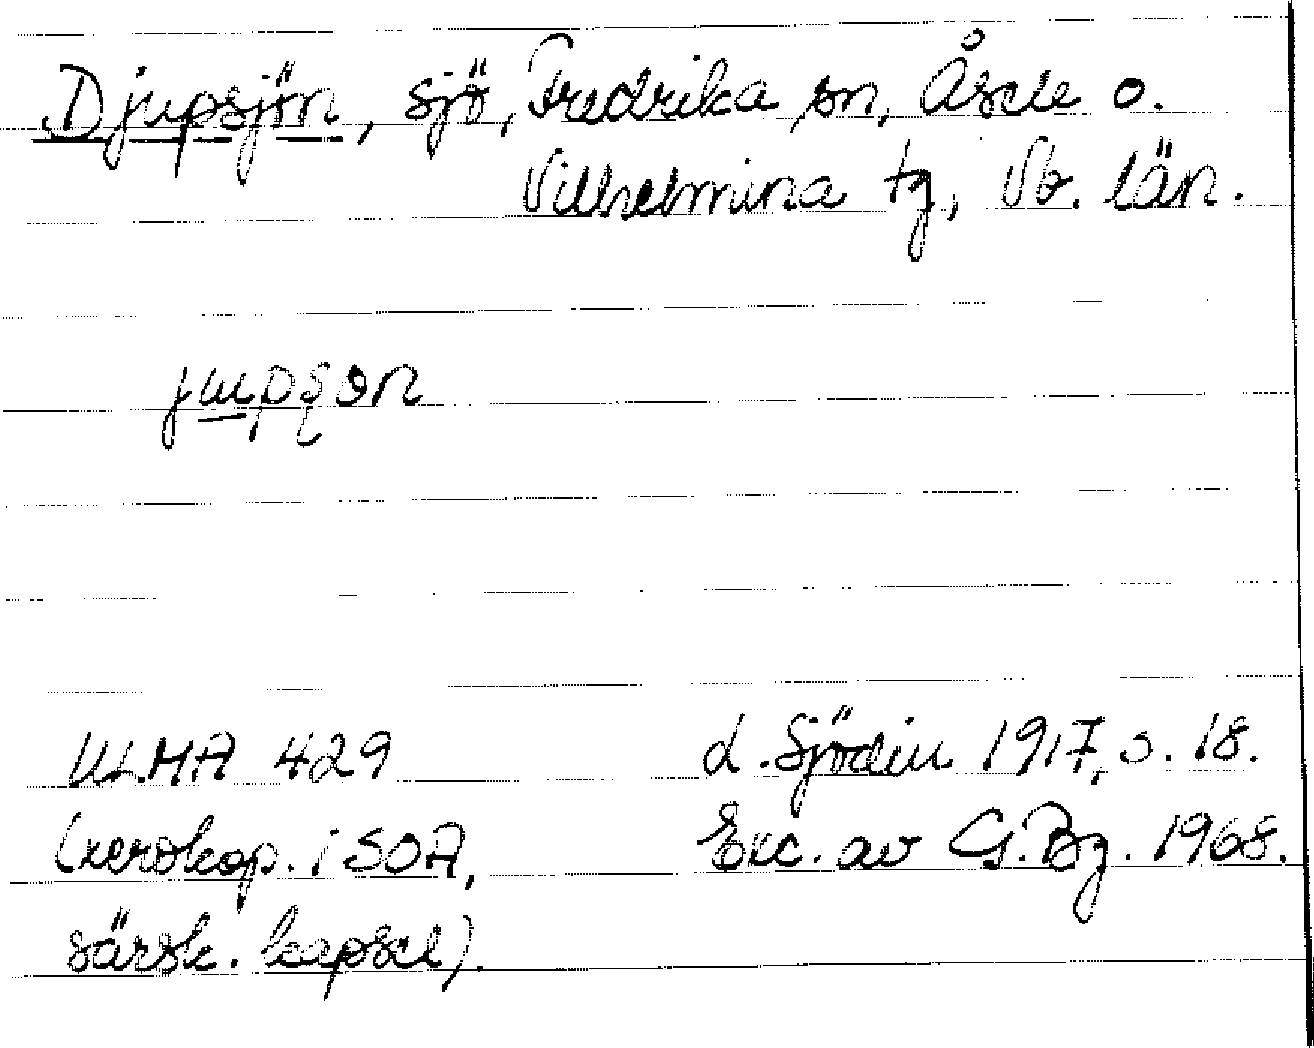 Djupsjön, sjö, Fredrika sn, Åsele o.
Vilhelmina tg, Vb. län.
jupʂɵn
ULMA 429
(xerokop. i SOA,
särsk. kapsel).
L. Sjödin 1917, s. 18.
Exc. av G. Bg. 1968.